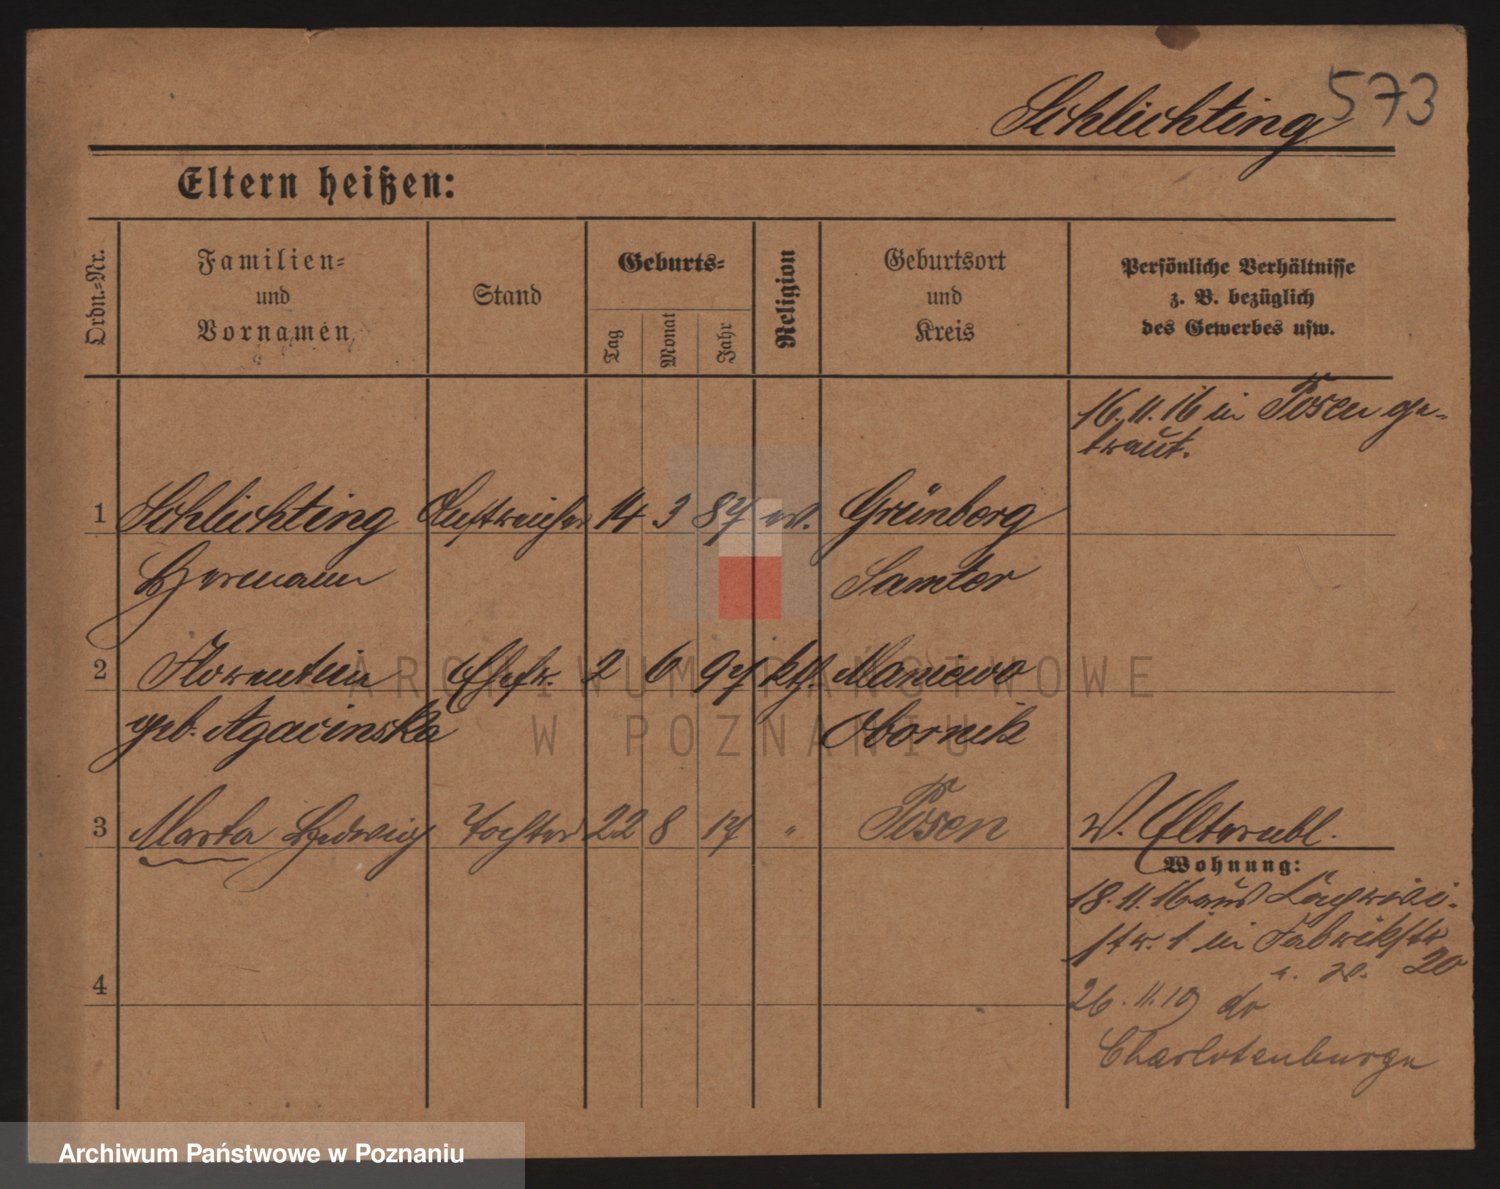 573
Schlichting
Eltern heißen:
Ordn.-Nr.
Familien-
und
Vornamen
Stand
Geburts-
Tag
Monat
Jahr
Religion
Geburtsort
und
Kreis
Persönliche Verhältnisse
z. B. bezüglich
des Gewerbes usw.
16.11.16 in Posen ge-
traut.
1 Schlichting Anstreicher 14 3 87 ev. Grünberg
Hermann Samter
2 Florentein Ehefr. 2 6 97 kth. Maniewo
geb. Agacinska Obornik
3 Marta Hedwig Tochter 22 8 17 " Posen W. Elternbl.
Wohnung:
18.11.16 aus
str. 1 in Fabrikstr
20
4
26.11.19
Charlotenburge
ARCHIWUM PAŃSTWOWE
W POZNANIU
Archiwum Państwowe w Poznaniu